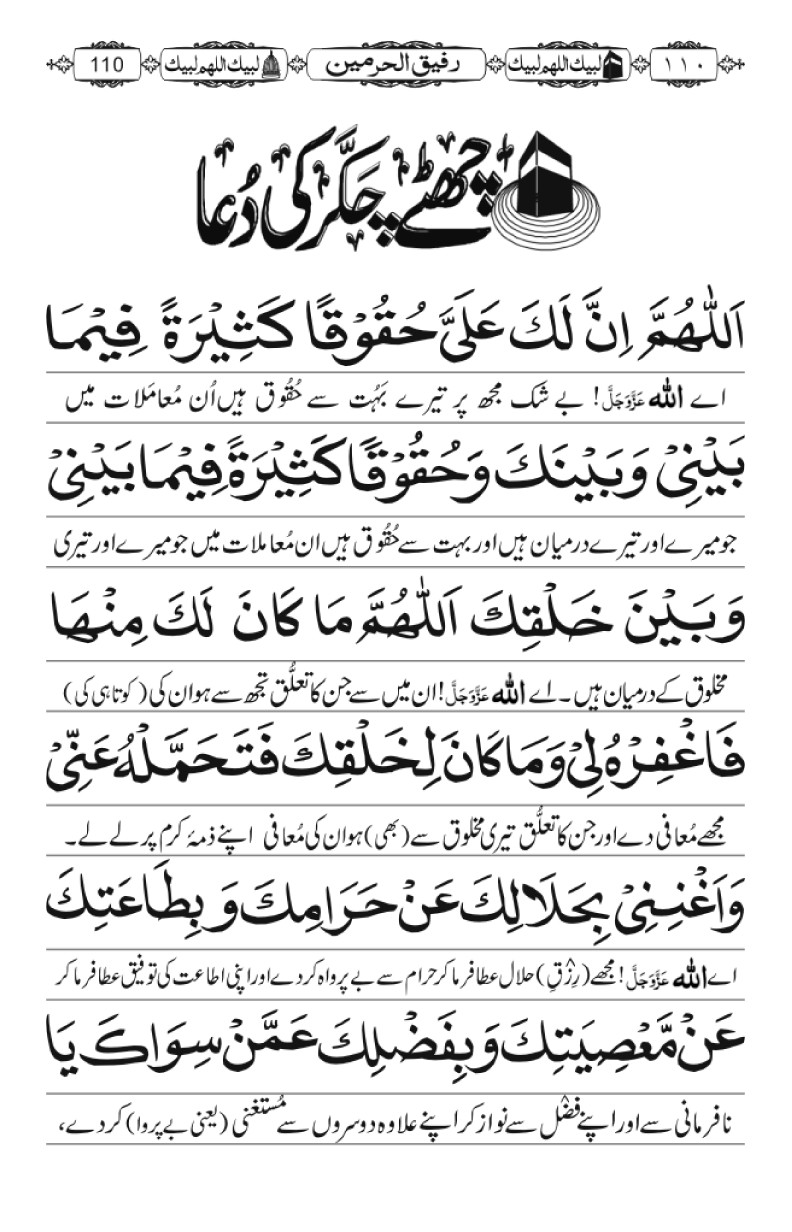 ١١٠ لبیك اللهم لبیك رفیق الحرمین لبیك اللهم لبیك 110
چھٹے چکّر کی دُعا
اَللّٰهُمَّ اِنَّ لَكَ عَلَیَّ حُقُوْقًا كَثِیْرَةً فِیْمَا
اے اللّٰه عَزَّوَجَلَّ! بے شک مجھ پر تیرے بَہُت سے حُقُوق ہیں اُن مُعامَلات میں
بَیْنِیْ وَبَیْنَكَ وَحُقُوْقًا كَثِیْرَةً فِیْمَا بَیْنِیْ
جو میرے اور تیرے درمیان ہیں اور بہت سے حُقُوق ہیں ان مُعاملات میں جو میرے اور تیری
وَبَیْنَ خَلْقِكَ اَللّٰهُمَّ مَا كَانَ لَكَ مِنْهَا
مخلوق کے درمیان ہیں۔ اے اللّٰه عَزَّوَجَلَّ! ان میں سے جن کا تعلُّق تجھ سے ہو ان کی (کوتاہی کی)
فَاغْفِرْهُ لِیْ وَمَا كَانَ لِخَلْقِكَ فَتَحَمَّلْهُ عَنِّیْ
مجھے مُعافی دے اور جن کا تعلُّق تیری مخلوق سے (بھی) ہو ان کی مُعافی اپنے ذمۂ کرم پر لے لے۔
وَاَغْنِنِیْ بِحَلَالِكَ عَنْ حَرَامِكَ وَبِطَاعَتِكَ
اے اللّٰه عَزَّوَجَلَّ! مجھے (رِزْقِ) حلال عطا فرما کر حرام سے بے پرواہ کردے اور اپنی اطاعت کی توفیق عطا فرما کر
عَنْ مَّعْصِیَتِكَ وَبِفَضْلِكَ عَمَّنْ سِوَاكَ یَا
نافرمانی سے اور اپنے فضْل سے نواز کر اپنے علاوہ دوسروں سے مُستغنی (یعنی بے پروا) کردے،